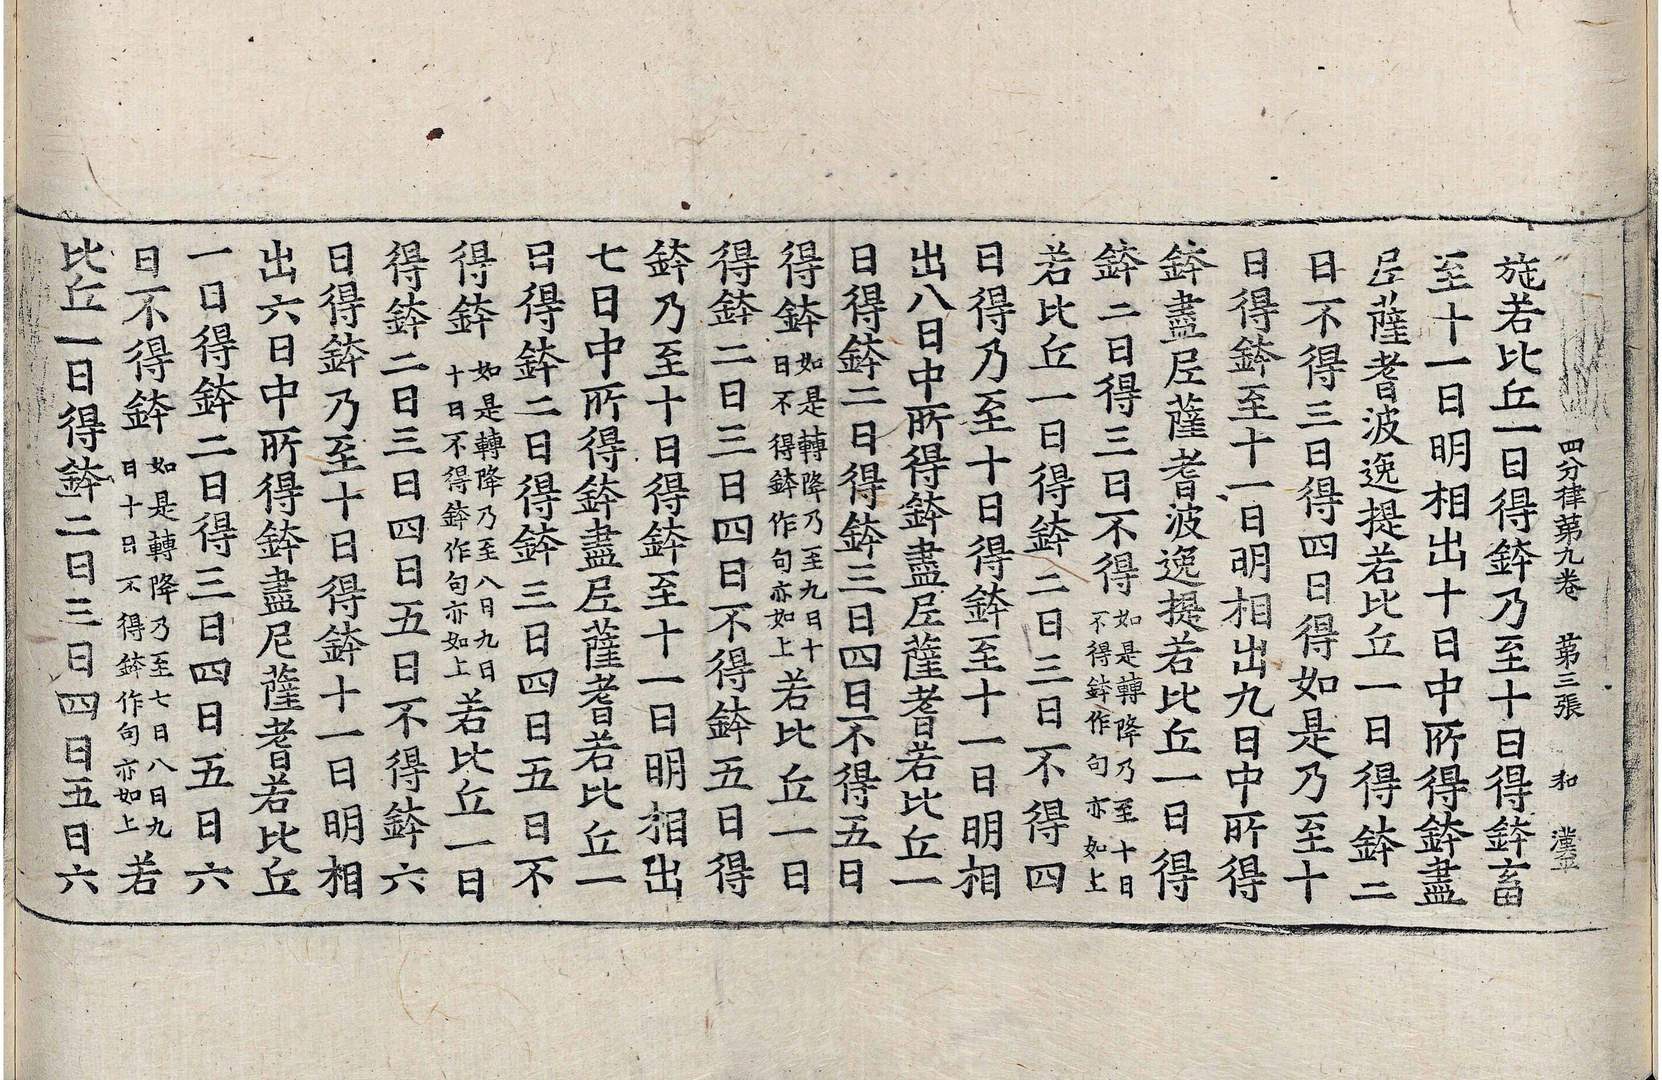 四分律第九卷 第三張 和
施若比丘一日得鉢乃至十日得鉢畜
至十一日明相出十日中所得鉢盡
尼薩耆波逸提若比丘一日得鉢二
日不得三日得四日得如是乃至十
日得鉢至十一日明相出九日中所得
鉢盡尼薩耆波逸提若比丘一日得
鉢二日得三日不得如是轉降乃至十日不得鉢作句亦如上
若比丘一日得鉢二日三日不得四
日得乃至十日得鉢至十一日明相
出八日中所得鉢盡尼薩耆若比丘一
日得鉢二日得鉢三日四日不得五日
得鉢如是轉降乃至九日十日不得鉢作句亦如上若比丘一日
得鉢二日三日四日不得鉢五日得
鉢乃至十日得鉢至十一日明相出
七日中所得鉢盡尼薩耆若比丘一
日得鉢二日得鉢三日四日五日不
得鉢如是轉降乃至八日九日十日不得鉢作句亦如上若比丘一日
得鉢二日三日四日五日不得鉢六
日得鉢乃至十日得鉢十一日明相
出六日中所得鉢盡尼薩耆若比丘
一日得鉢二日得三日四日五日六
日不得鉢如是轉降乃至七日八日九日十日不得鉢作句亦如上若
比丘一日得鉢二日三日四日五日六